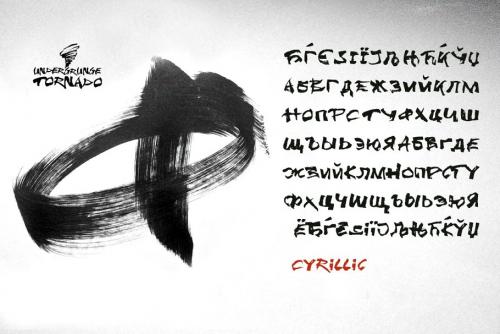 UNDERGRUNGE
TORNADO
ЂЃЄЅІЇЈЉЊЋЌЎЏ
АБВГДЕЖЗИЙКЛМ
НОПРСТУФХЦЧШ
ЩЪЫЬЭЮЯАБВГДЕ
ЖЗИЙКЛМНОПРСТУ
ФХЦЧШЩЪЫЬЭЮЯ
ЁЂЃЄЅІЇЈЉЊЋЌЎЏ
CYRILLIC